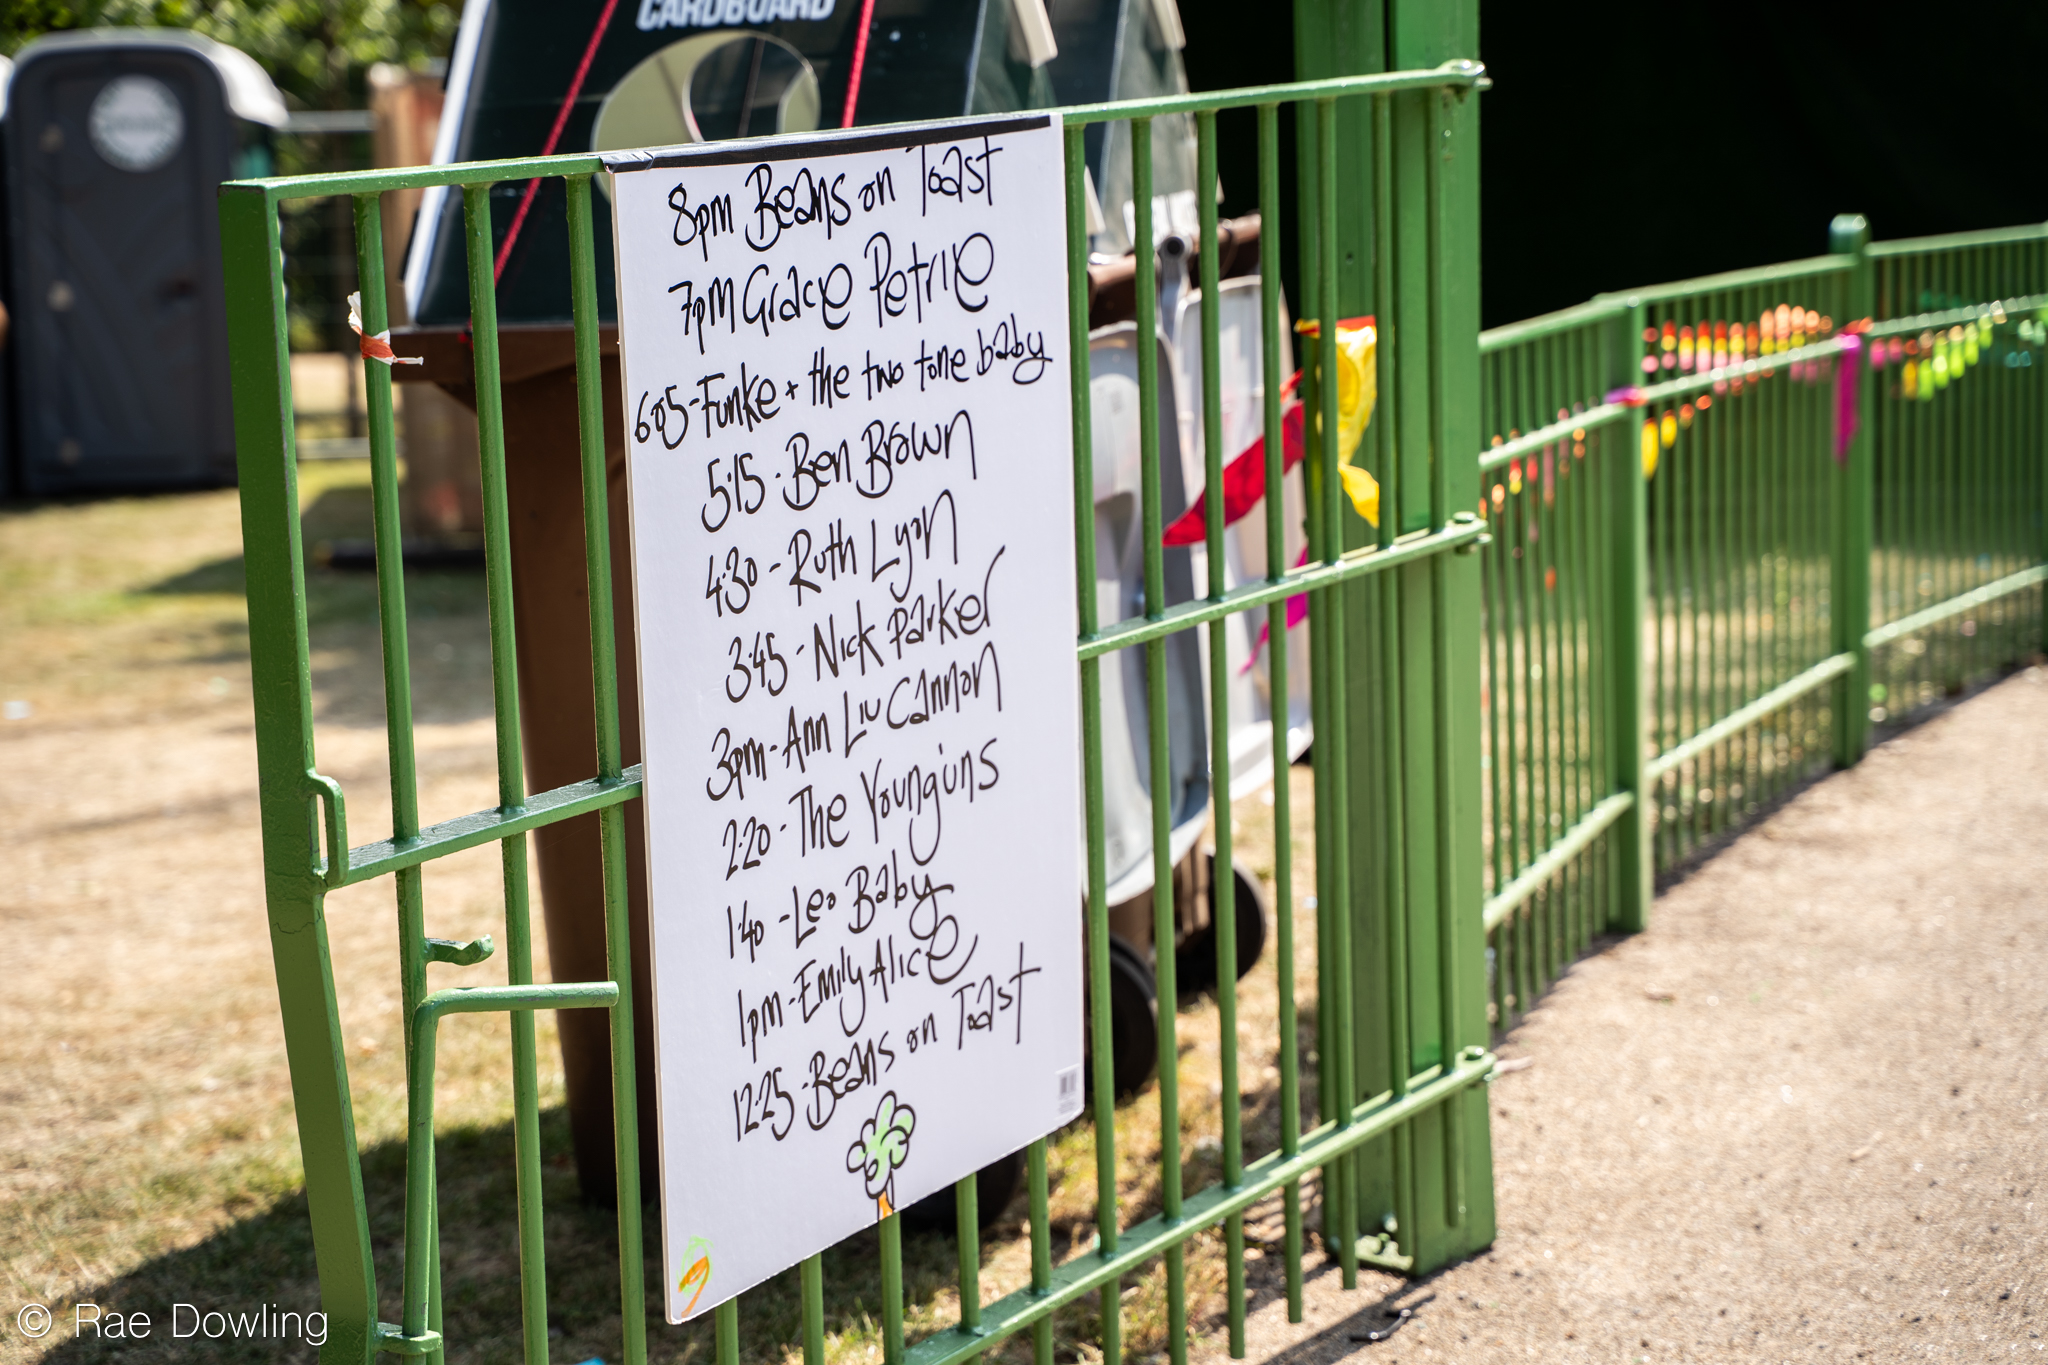 CARDBOARD
8pm Beans on Toast
7pm Grace Petrie
6:05 - Funke + the two tone baby
5:15 - Ben Brown
4:30 - Ruth Lyon
3:45 - Nick Parker
3pm - Ann Liu Cannon
2:20 - The Younguns
1:40 - Leo Baby
1pm - Emily Alice
12:25 - Beans on Toast
© Rae Dowling